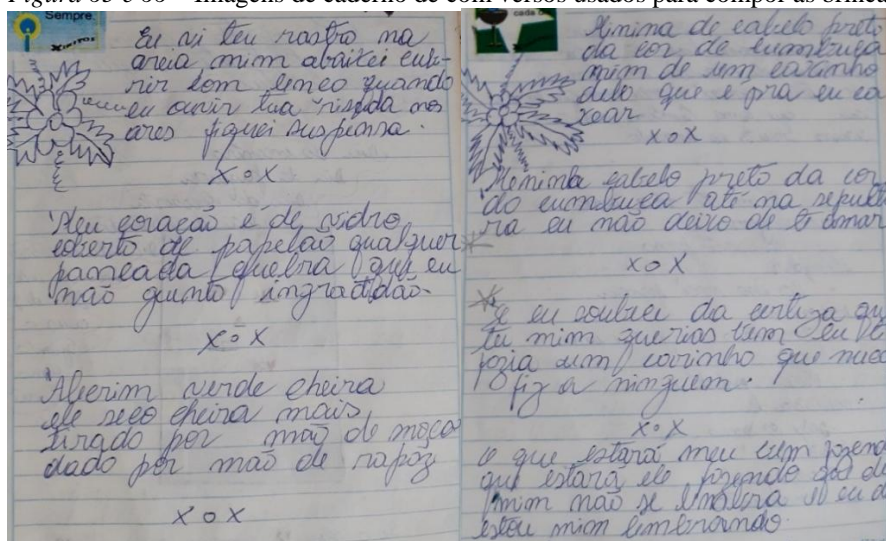 Figura 05 e 06 – Imagens de caderno de com versos usados para compor as brincad
Sempre
Eu vi teu rastro na
areia mim abaixei cub-
rir com lenço quando
eu ouvir tua risada nos
ares fiquei suspensa.
X o X
Meu coração é de vidro
coberto de papelão qualquer
pancada quebra que eu
não guento ingratidão.
X o X
Alecrim verde cheira
ele seco cheira mais,
tirado por mão de moça
dado por mão de rapaz
X o X
cada
Minina de cabelo preto
da cor de
mim de um carinho
delo que e pra eu ca
X o X
Meninba cabelo preto da cor
do até na sepultu
ra eu não deixo de ti amar
X o X
Se eu soubece da certeza qu
tu mim querias bem eu te
fazia um carinho que nuca
fiz a ninguém.
X o X
o que estará meu bem fazend
que estará ele fazendo que de
mim não se lembra só eu d
estou mim lembrando.